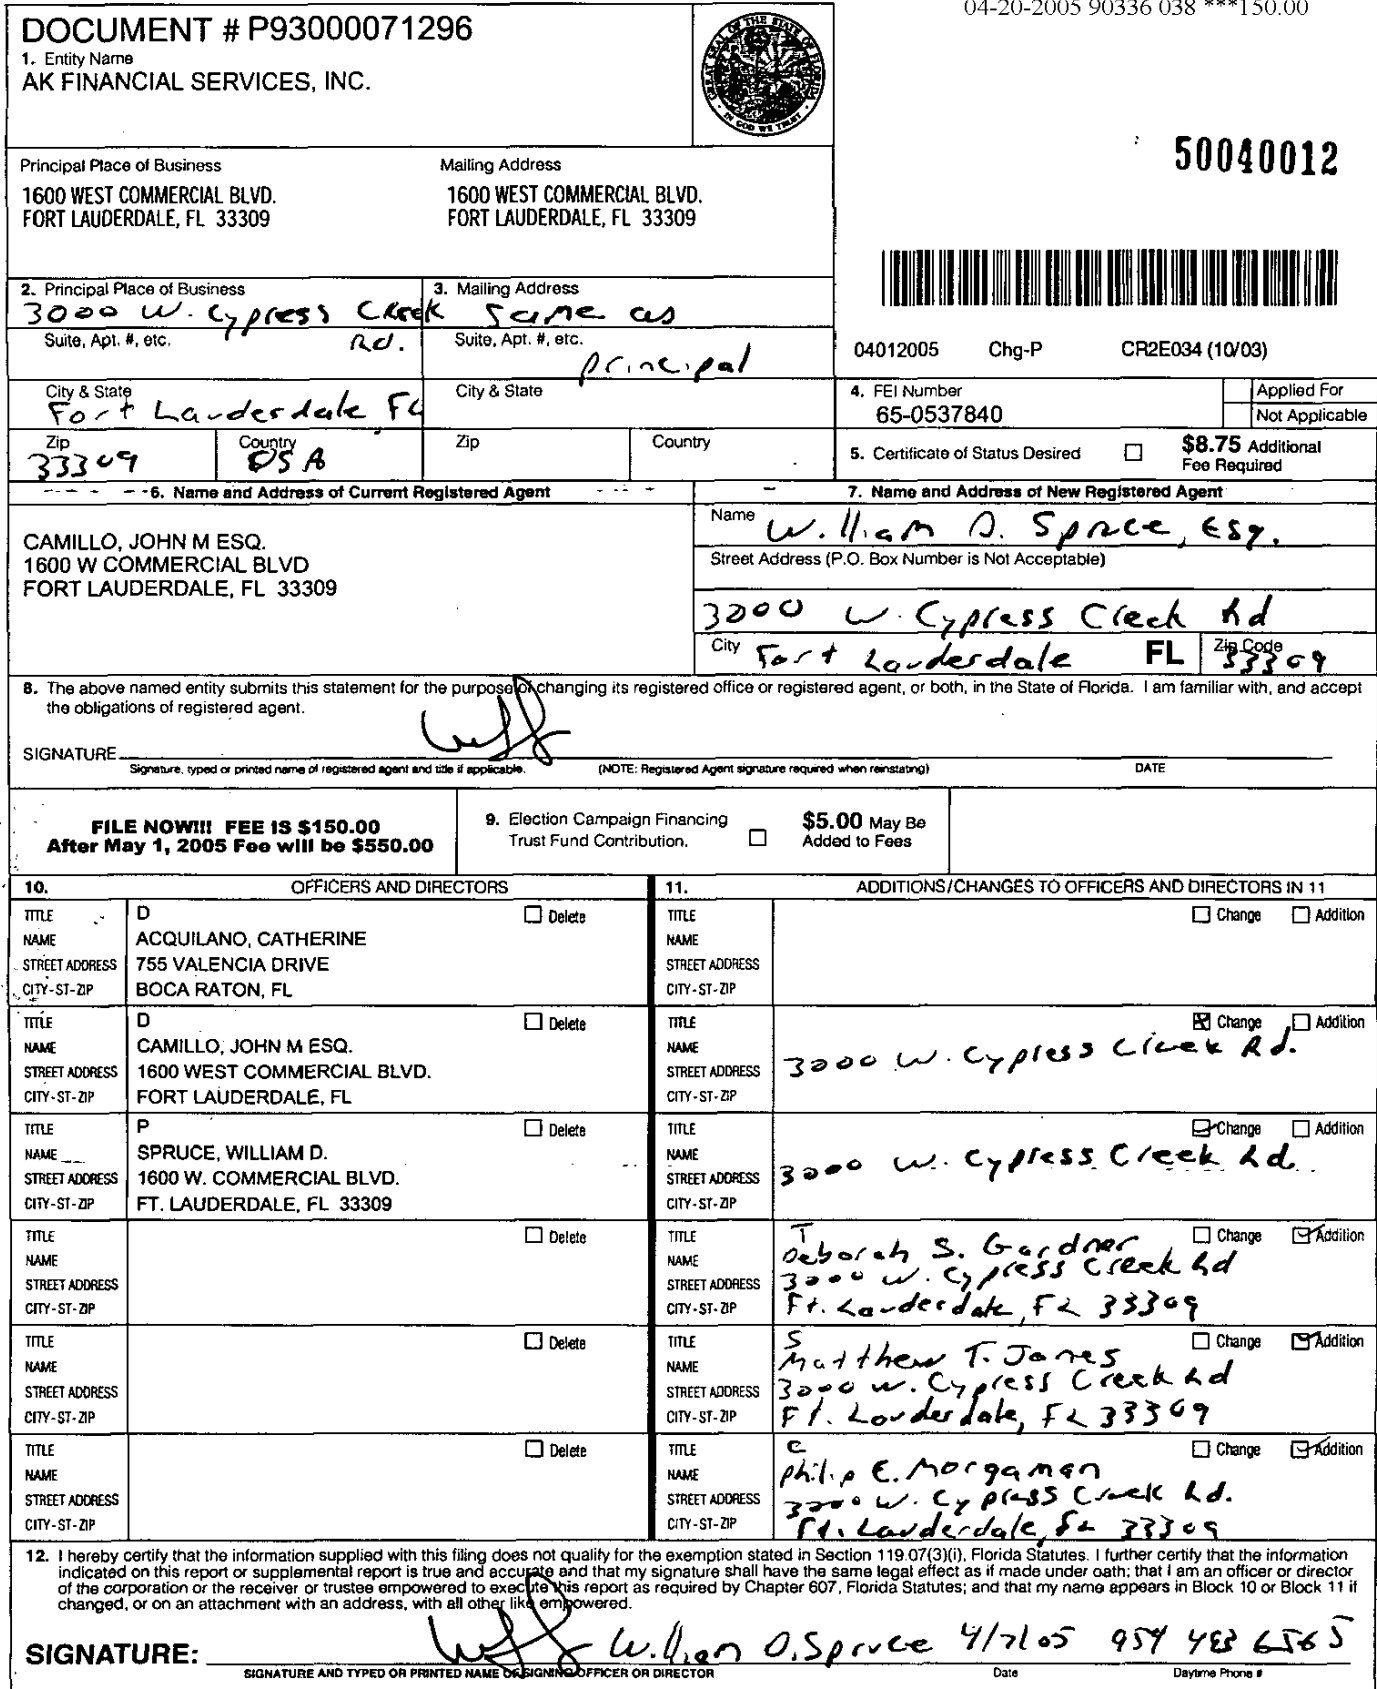 04-20-2005 90336 038 ***150.00
DOCUMENT # P93000071296
1. Entity Name
AK FINANCIAL SERVICES, INC.
GREAT SEAL OF THE STATE OF FLORIDA
IN GOD WE TRUST
50040012
Principal Place of Business
1600 WEST COMMERCIAL BLVD.
FORT LAUDERDALE, FL 33309
Mailing Address
1600 WEST COMMERCIAL BLVD.
FORT LAUDERDALE, FL 33309
2. Principal Place of Business
3000 W. Cypress Creek
Suite, Apt. #, etc. Rd.
City & State
Fort Lauderdale FL
Zip
33309
Country
USA
3. Mailing Address
Same as
Suite, Apt. #, etc.
principal
City & State
Zip
Country
04012005 Chg-P CR2E034 (10/03)
4. FEI Number
65-0537840
Applied For
Not Applicable
5. Certificate of Status Desired
$8.75 Additional
Fee Required
6. Name and Address of Current Registered Agent
CAMILLO, JOHN M ESQ.
1600 W COMMERCIAL BLVD
FORT LAUDERDALE, FL 33309
7. Name and Address of New Registered Agent
Name William D. Spruce, Esq.
Street Address (P.O. Box Number is Not Acceptable)
3000 W. Cypress Creek Rd
City Fort Lauderdale FL Zip Code 33309
8. The above named entity submits this statement for the purpose of changing its registered office or registered agent, or both, in the State of Florida. I am familiar with, and accept
the obligations of registered agent.
SIGNATURE
Signature, typed or printed name of registered agent and title if applicable. (NOTE: Registered Agent signature required when reinstating) DATE
FILE NOW!!! FEE IS $150.00
After May 1, 2005 Fee will be $550.00
9. Election Campaign Financing
Trust Fund Contribution.
$5.00 May Be
Added to Fees
10. OFFICERS AND DIRECTORS
11. ADDITIONS/CHANGES TO OFFICERS AND DIRECTORS IN 11
TITLE D Delete
NAME ACQUILANO, CATHERINE
STREET ADDRESS 755 VALENCIA DRIVE
CITY-ST-ZIP BOCA RATON, FL
TITLE Change Addition
NAME
STREET ADDRESS
CITY-ST-ZIP
TITLE D Delete
NAME CAMILLO, JOHN M ESQ.
STREET ADDRESS 1600 WEST COMMERCIAL BLVD.
CITY-ST-ZIP FORT LAUDERDALE, FL
TITLE Change Addition
NAME
STREET ADDRESS 3000 W. Cypress Creek Rd.
CITY-ST-ZIP
TITLE P Delete
NAME SPRUCE, WILLIAM D.
STREET ADDRESS 1600 W. COMMERCIAL BLVD.
CITY-ST-ZIP FT. LAUDERDALE, FL 33309
TITLE Change Addition
NAME
STREET ADDRESS 3000 W. Cypress Creek Rd.
CITY-ST-ZIP
TITLE Delete
NAME
STREET ADDRESS
CITY-ST-ZIP
TITLE T Change Addition
NAME Deborah S. Gardner
STREET ADDRESS 3000 W. Cypress Creek Rd
CITY-ST-ZIP Ft. Lauderdale, FL 33309
TITLE Delete
NAME
STREET ADDRESS
CITY-ST-ZIP
TITLE S Change Addition
NAME Matthew T. Jones
STREET ADDRESS 3000 W. Cypress Creek Rd
CITY-ST-ZIP Ft. Lauderdale, FL 33309
TITLE Delete
NAME
STREET ADDRESS
CITY-ST-ZIP
TITLE C Change Addition
NAME Philip E. Morgaman
STREET ADDRESS 3000 W. Cypress Creek Rd.
CITY-ST-ZIP Ft. Lauderdale, FL 33309
12. I hereby certify that the information supplied with this filing does not qualify for the exemption stated in Section 119.07(3)(i), Florida Statutes. I further certify that the information
indicated on this report or supplemental report is true and accurate and that my signature shall have the same legal effect as if made under oath; that I am an officer or director
of the corporation or the receiver or trustee empowered to execute this report as required by Chapter 607, Florida Statutes; and that my name appears in Block 10 or Block 11 if
changed, or on an attachment with an address, with all other like empowered.
SIGNATURE: William D. Spruce 4/7/05 954 483 6565
SIGNATURE AND TYPED OR PRINTED NAME OF SIGNING OFFICER OR DIRECTOR Date Daytime Phone #